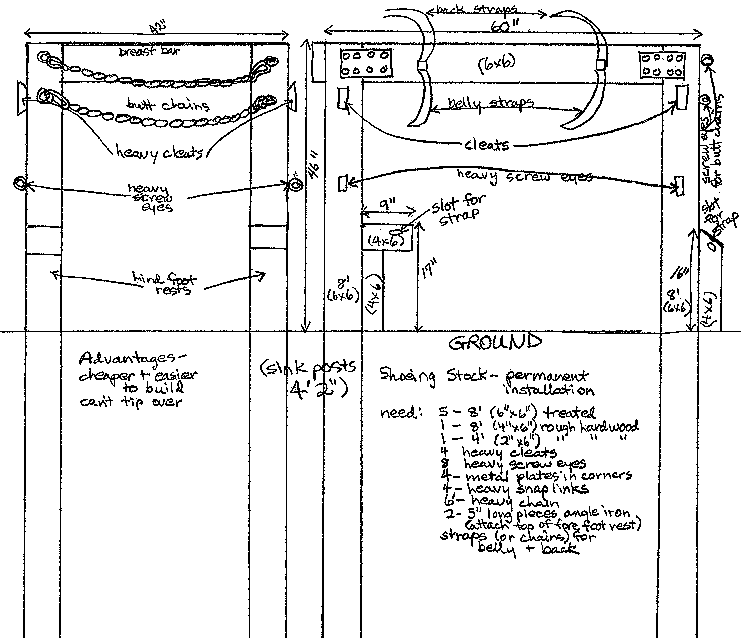 42"
breast bar
butt chains
heavy cleats
heavy
screw
eyes
hind foot
rests
back straps
60"
(6x6)
belly straps
cleats
heavy screw eyes
46"
9"
slot for
strap
(4x6)
17"
8'
(6x6)
(4x6)
screw eyes
for butt chains
slot
for
strap
16"
8'
(6x6)
(4x6)
GROUND
Advantages-
cheaper + easier
to build
can't tip over
(sink posts
4' 2")
Shoeing Stock - permanent
installation
need: 5 - 8' (6"x6") treated
1 - 8' (4"x6") rough hardwood
1 - 4' (2"x6") " " "
4 heavy cleats
8 heavy screw eyes
4 - metal plates in corners
4 - heavy snap links
6' heavy chain
2 - 5" long pieces angle iron
(attach top of fore foot rest)
straps (or chains) for
belly + back